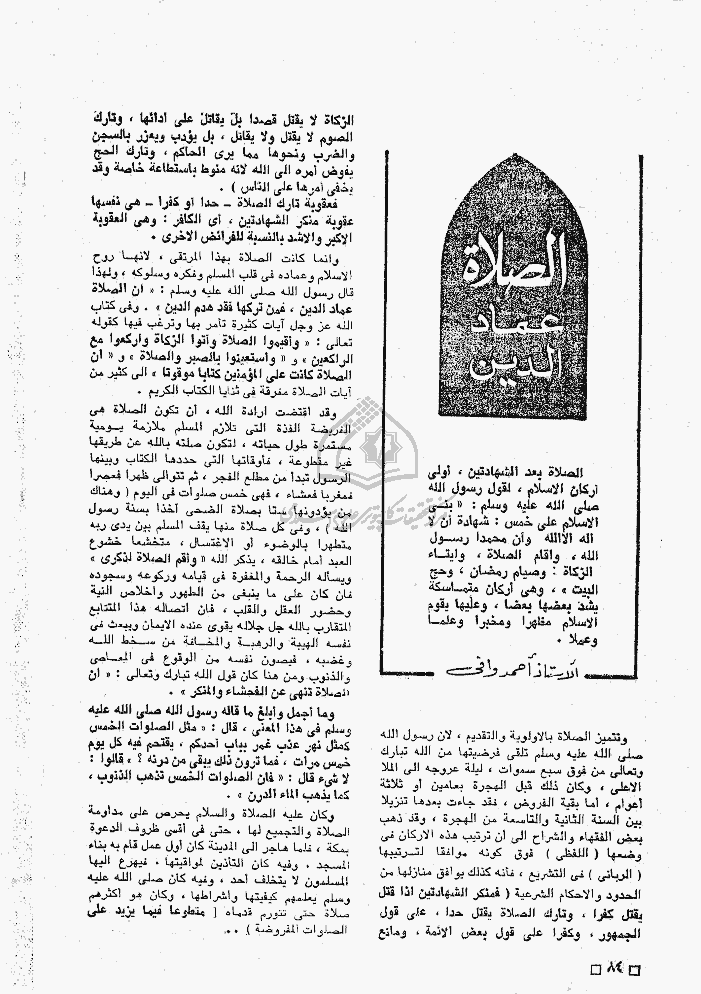 الصلاة
عماد
الدين
الصلاة بعد الشهادتين ، أولى
أركان الاسلام ، لقول رسول الله
صلى الله عليه وسلم : « بنــى
الاسلام على خمس : شهادة أن لا
اله الاالله وأن محمدا رســول
الله ، واقام الصلاة ، وايتــاء
الزكاة : وصيام رمضان ، وحج
البيت » ، وهى أركان متمــاسكة
يشد بعضها بعضا ، وعليها يقوم
الاسلام مظهرا ومخبرا وعلمــا
وعملا .
الأستاذ أحمد وافى
وتتميز الصلاة بالأولوية والتقديم ، لان رسول الله
صلى الله عليه وسلم تلقى فرضيتها من الله تبارك
وتعالى من فوق سبع سموات ، ليلة عروجه الى الملا
الاعلى ، وكان ذلك قبل الهجرة بعامين أو ثلاثة
أعوام ، أما بقية الفروض ، فقد جاءت بعدها تنزيلا
بين السنة الثانية والتاسعة من الهجرة ، وقد ذهب
بعض الفقهاء والشراح الى أن ترتيب هذه الاركان فى
وضعها ( اللفظى ) فوق كونه موافقا لتــرتيبها
( الربانى ) فى التشريع ، فانه كذلك يوافق منازلها من
الحدود والاحكام الشرعية ( فمنكر الشهادتين اذا قتل
يقتل كفرا ، وتارك الصلاة يقتل حدا ، على قول
الجمهور ، وكفرا على قول بعض الأئمة ، ومانع
الزكاة لا يقتل قصدا بل يقاتل على أدائها ، وتارك
الصوم لا يقتل ولا يقاتل ، بل يؤدب ويعزر بالسجن
والضرب ونحوها مما يرى الحاكم ، وتارك الحج
يفوض أمره الى الله لانه منوط باستطاعة خاصة وقد
يخفى أمرها على الناس ) .
فعقوبة تارك الصلاة ـ حدا أو كفرا ـ هى نفسها
عقوبة منكر الشهادتين ، أى الكافر : وهى العقوبة
الاكبر والاشد بالنسبة للفرائض الاخرى .
وانما كانت الصلاة بهذا المرتقى ، لانهــا روح
الاسلام وعماده فى قلب المسلم وفكره وسلوكه ، ولهذا
قال رسول الله صلى الله عليه وسلم : « ان الصلاة
عماد الدين ، فمن تركها فقد هدم الدين » . وفى كتاب
الله عز وجل آيات كثيرة تأمر بها وترغب فيها كقوله
تعالى : « وأقيموا الصلاة وآتوا الزكاة واركعوا مع
الراكعين » و « واستعينوا بالصبر والصلاة » و « ان
الصلاة كانت على المؤمنين كتابا موقوتا » ، الى كثير من
آيات الصلاة مفرقة فى ثنايا الكتاب الكريم .
وقد اقتضت ارادة الله ، أن تكون الصلاة هى
الفريضة الفذة التى تلازم المسلم ملازمة يــومية
مستمرة طول حياته ، لتكون صلته بالله عن طريقها
غير مقطوعة ، فأوقاتها التى حددها الكتاب وبينها
الرسول تبدأ من مطلع الفجر ، ثم تتوالى ظهرا فعصرا
فمغربا فعشاء ، فهى خمس صلوات فى اليوم ( وهناك
من يؤدونها ستا بصلاة الضحى أخذا بسنة رسول
الله ) ، وفى كل صلاة منها يقف المسلم بين يدى ربه
متطهرا بالوضوء أو الاغتسال ، متخشعا خشوع
العبد أمام خالقه ، يذكر الله « وأقم الصلاة لذكرى »
ويسأله الرحمة والمغفرة فى قيامه وركوعه وسجوده
فان كان على ما ينبغى من الطهور واخلاص النية
وحضور العقل والقلب ، فان اتصاله هذا المتتابع
المتقارب بالله جل جلاله يقوى عنده الايمان ويبعث فى
نفسه الهيبة والرهبــة والمخــافة من سخــط اللــه
وغضبه ، فيصون نفسه من الوقوع فى المعــاصى
والذنوب ومن هنا كان قول الله تبارك وتعالى : « ان
الصلاة تنهى عن الفحشاء والمنكر » .
وما أجمل وأبلغ ما قاله رسول الله صلى الله عليه
وسلم فى هذا المعنى ، قال : « مثل الصلوات الخمس
كمثل نهر عذب غمر بباب أحدكم ، يقتحم فيه كل يوم
خمس مرات ، فما ترون ذلك يبقى من درنه ؟ ، قالوا :
لا شىء قال : « فان الصلوات الخمس تذهب الذنوب ،
كما يذهب الماء الدرن » .
وكان عليه الصلاة والسلام يحرص على مداومة
الصلاة والتجميع لها ، حتى فى أقسى ظروف الدعوة
بمكة ، فلما هاجر الى المدينة كان أول عمل قام به بناء
المسجد ، وفيه كان التأذين لمواقيتها ، فيهرع اليها
المسلمون لا يتخلف أحد ، وفيه كان صلى الله عليه
وسلم يعلمهم كيفيتها وأشراطها ، وكان هو أكثرهم
صلاة حتى تتورم قدماه [ متطوعا فيما يزيد على
الصلوات المفروضة ) ..
٨٤